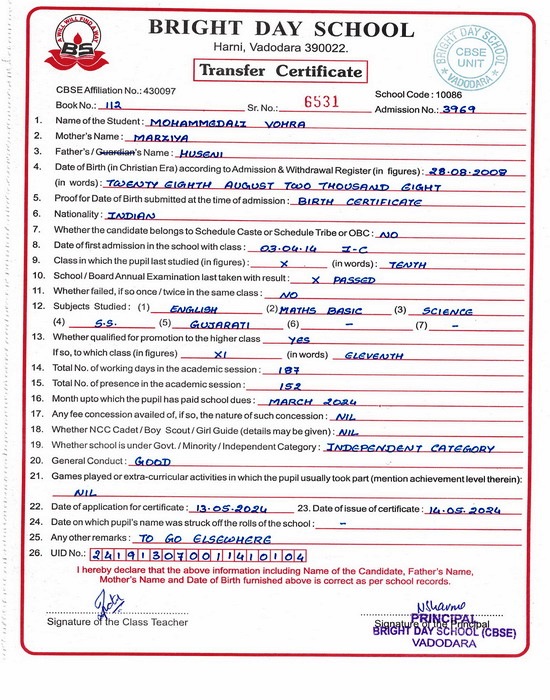 A WILL WILL FIND A WAY
BS
BRIGHT DAY SCHOOL
Harni, Vadodara 390022.
Transfer Certificate
BRIGHT DAY SCHOOL
CBSE
UNIT
VADODARA
CBSE Affiliation No.: 430097
School Code : 10086
Book No.: 112 Sr. No.: 6531 Admission No.: 3969
1. Name of the Student : MOHAMMEDALI VOHRA
2. Mother's Name : MARZIYA
3. Father's / Guardian's Name : HUSENI
4. Date of Birth (in Christian Era) according to Admission & Withdrawal Register (in figures) : 28.08.2008
(in words) : TWENTY EIGHTH AUGUST TWO THOUSAND EIGHT
5. Proof for Date of Birth submitted at the time of admission : BIRTH CERTIFICATE
6. Nationality : INDIAN
7. Whether the candidate belongs to Schedule Caste or Schedule Tribe or OBC : NO
8. Date of first admission in the school with class : 03.04.14 I-C
9. Class in which the pupil last studied (in figures) : X (in words) : TENTH
10. School / Board Annual Examination last taken with result : X PASSED
11. Whether failed, if so once / twice in the same class : NO
12. Subjects Studied : (1) ENGLISH (2) MATHS BASIC (3) SCIENCE
(4) S.S. (5) GUJARATI (6) - (7) -
13. Whether qualified for promotion to the higher class YES
If so, to which class (in figures) XI (in words) ELEVENTH
14. Total No. of working days in the academic session : 187
15. Total No. of presence in the academic session : 152
16. Month upto which the pupil has paid school dues : MARCH 2024
17. Any fee concession availed of, if so, the nature of such concession : NIL
18. Whether NCC Cadet / Boy Scout / Girl Guide (details may be given) : NIL
19. Whether school is under Govt. / Minority / Independent Category : INDEPENDENT CATEGORY
20. General Conduct : GOOD
21. Games played or extra-curricular activities in which the pupil usually took part (mention achievement level therein) :
NIL
22. Date of application for certificate : 13.05.2024 23. Date of issue of certificate : 14.05.2024
24. Date on which pupil's name was struck off the rolls of the school : -
25. Any other remarks : TO GO ELSEWHERE
26. UID No.: 241913070011410104
I hereby declare that the above information including Name of the Candidate, Father's Name,
Mother's Name and Date of Birth furnished above is correct as per school records.
Signature of the Class Teacher
Signature of the Principal
PRINCIPAL
BRIGHT DAY SCHOOL (CBSE)
VADODARA